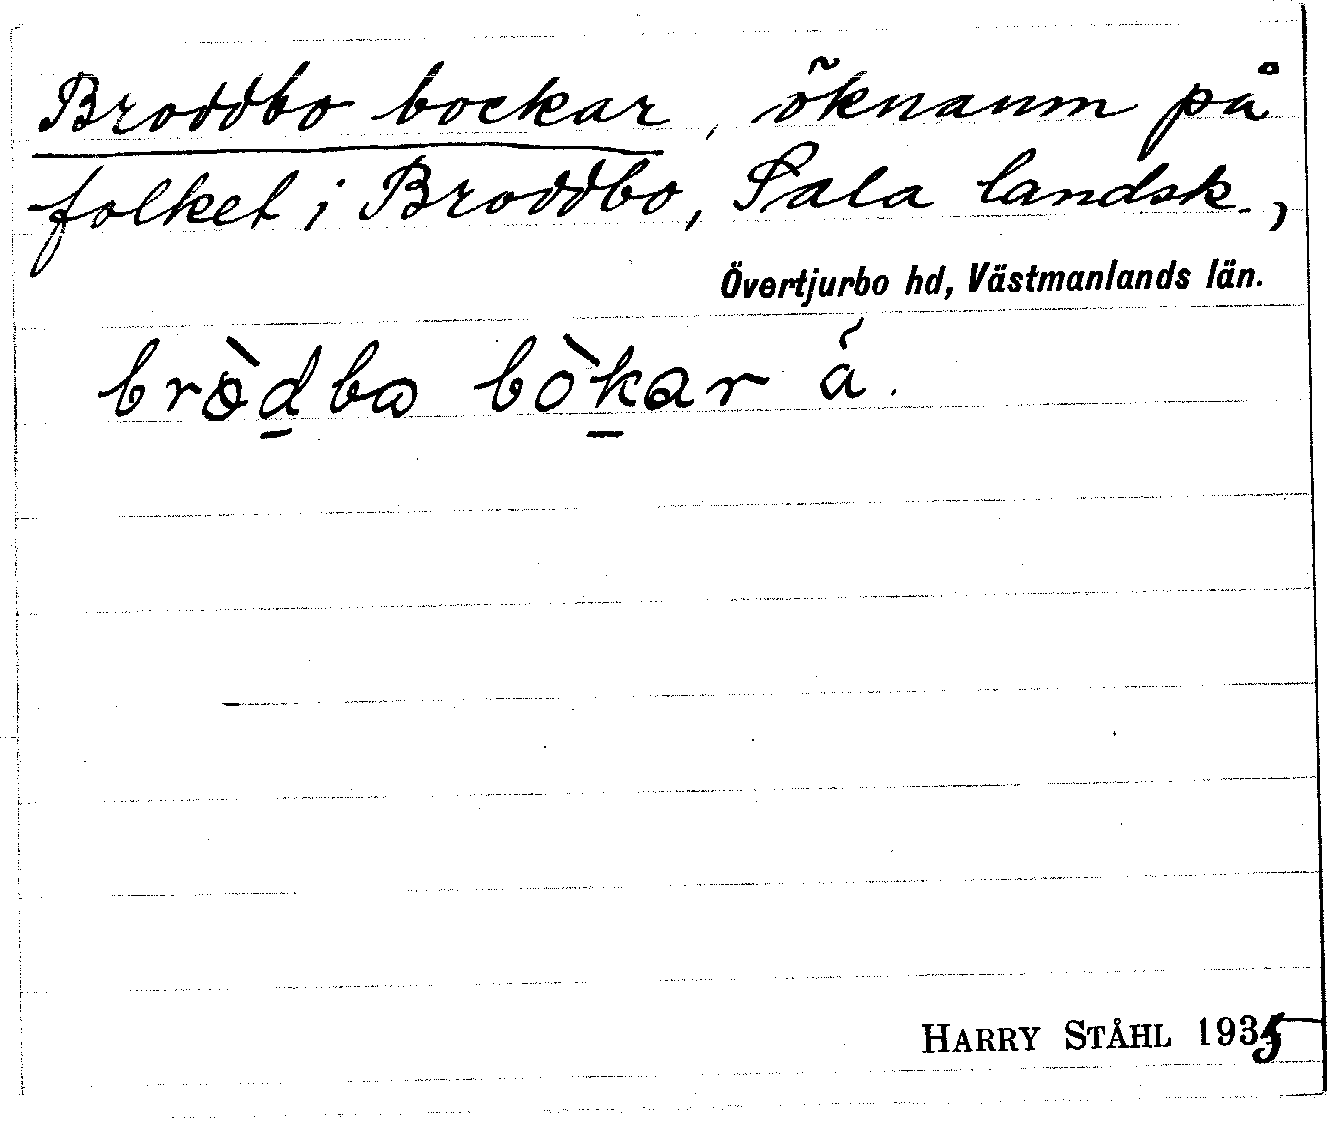 Broddbo bockar, öknamn på
folket i Broddbo, Sala landsk.,
Övertjurbo hd, Västmanlands län.
bròd̲bω bòk̲ar á.
HARRY STÅHL 1935